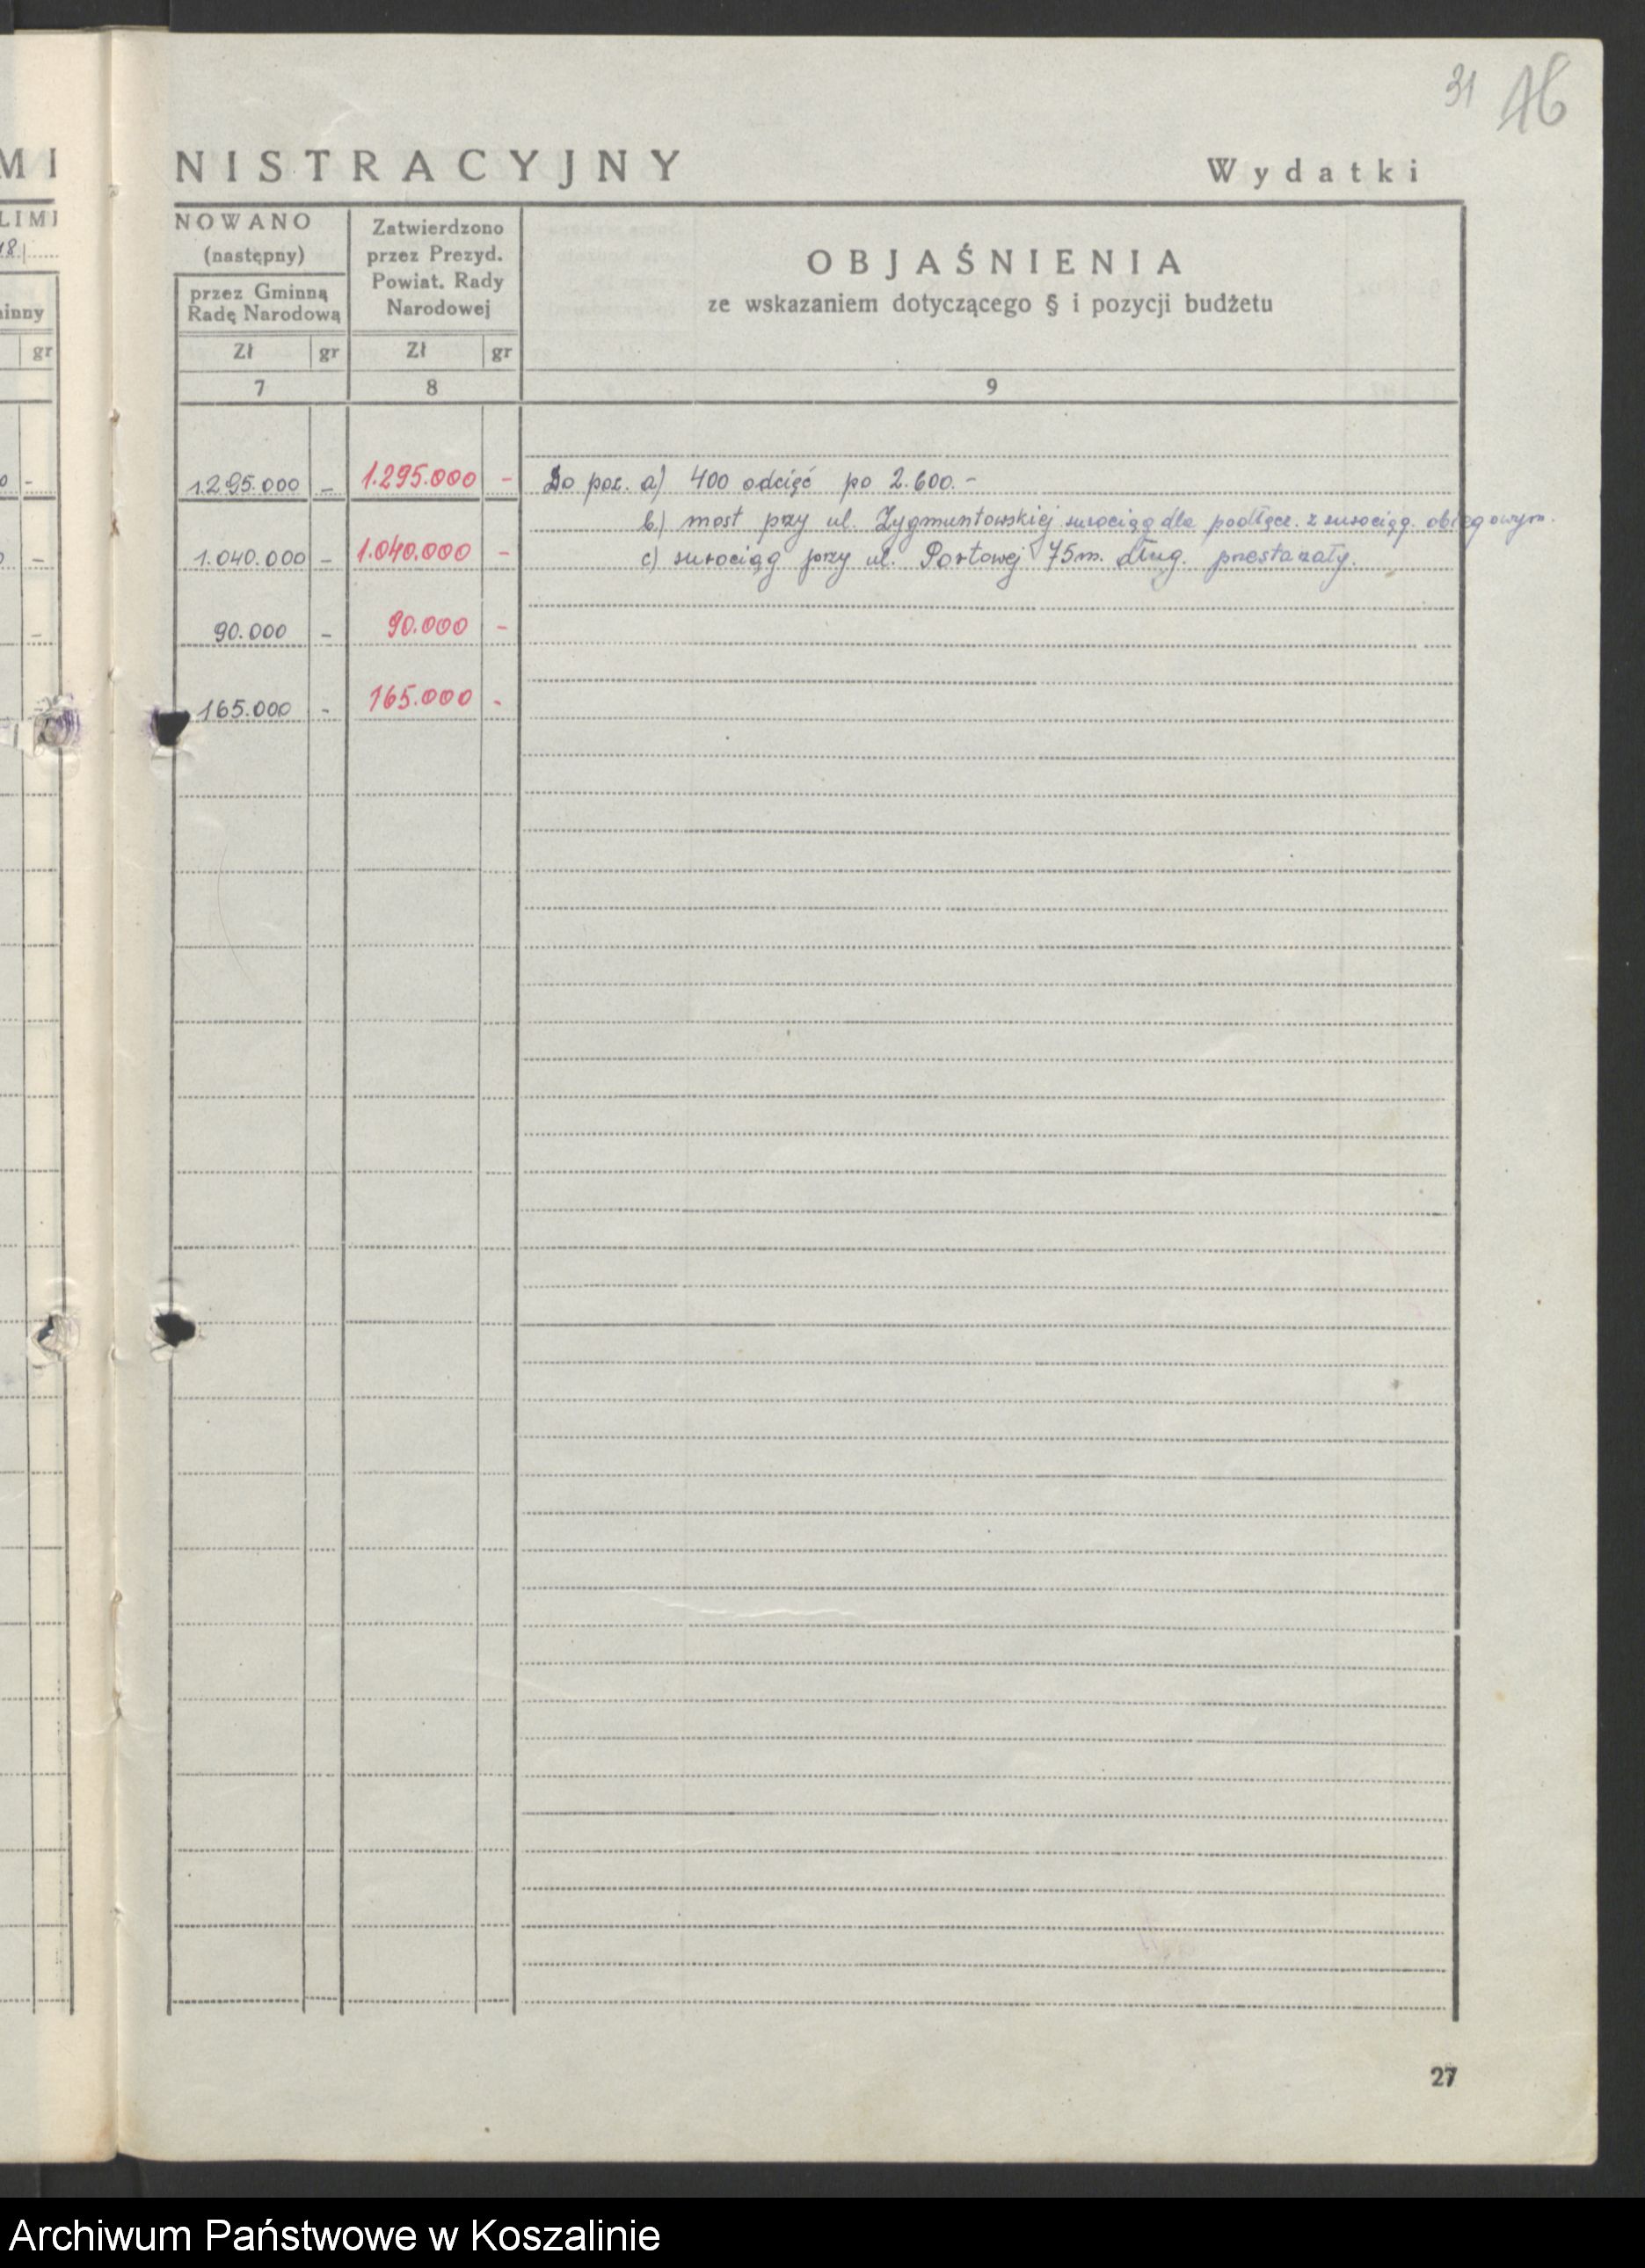 31 46
MI
NISTRACYJNY Wydatki
LIMI
18.
inny
gr
NOWANO
(następny)
przez Gminną
Radę Narodową
Zatwierdzono
przez Prezyd.
Powiat. Rady
Narodowej
OBJAŚNIENIA
ze wskazaniem dotyczącego § i pozycji budżetu
Zł gr Zł gr
7 8 9
1.295.000 – 1.295.000 – Do poz. a) 400 odcięć po 2.600.–
b.) most przy ul. Zygmuntowskiej surociąg dla podłącz. z surociąg. obiegowym.
1.040.000 – 1.040.000 – c) surociąg przy ul. Portowej 75m. dług. przestarzały.
90.000 – 90.000 –
165.000 – 165.000 -
27
Archiwum Państwowe w Koszalinie